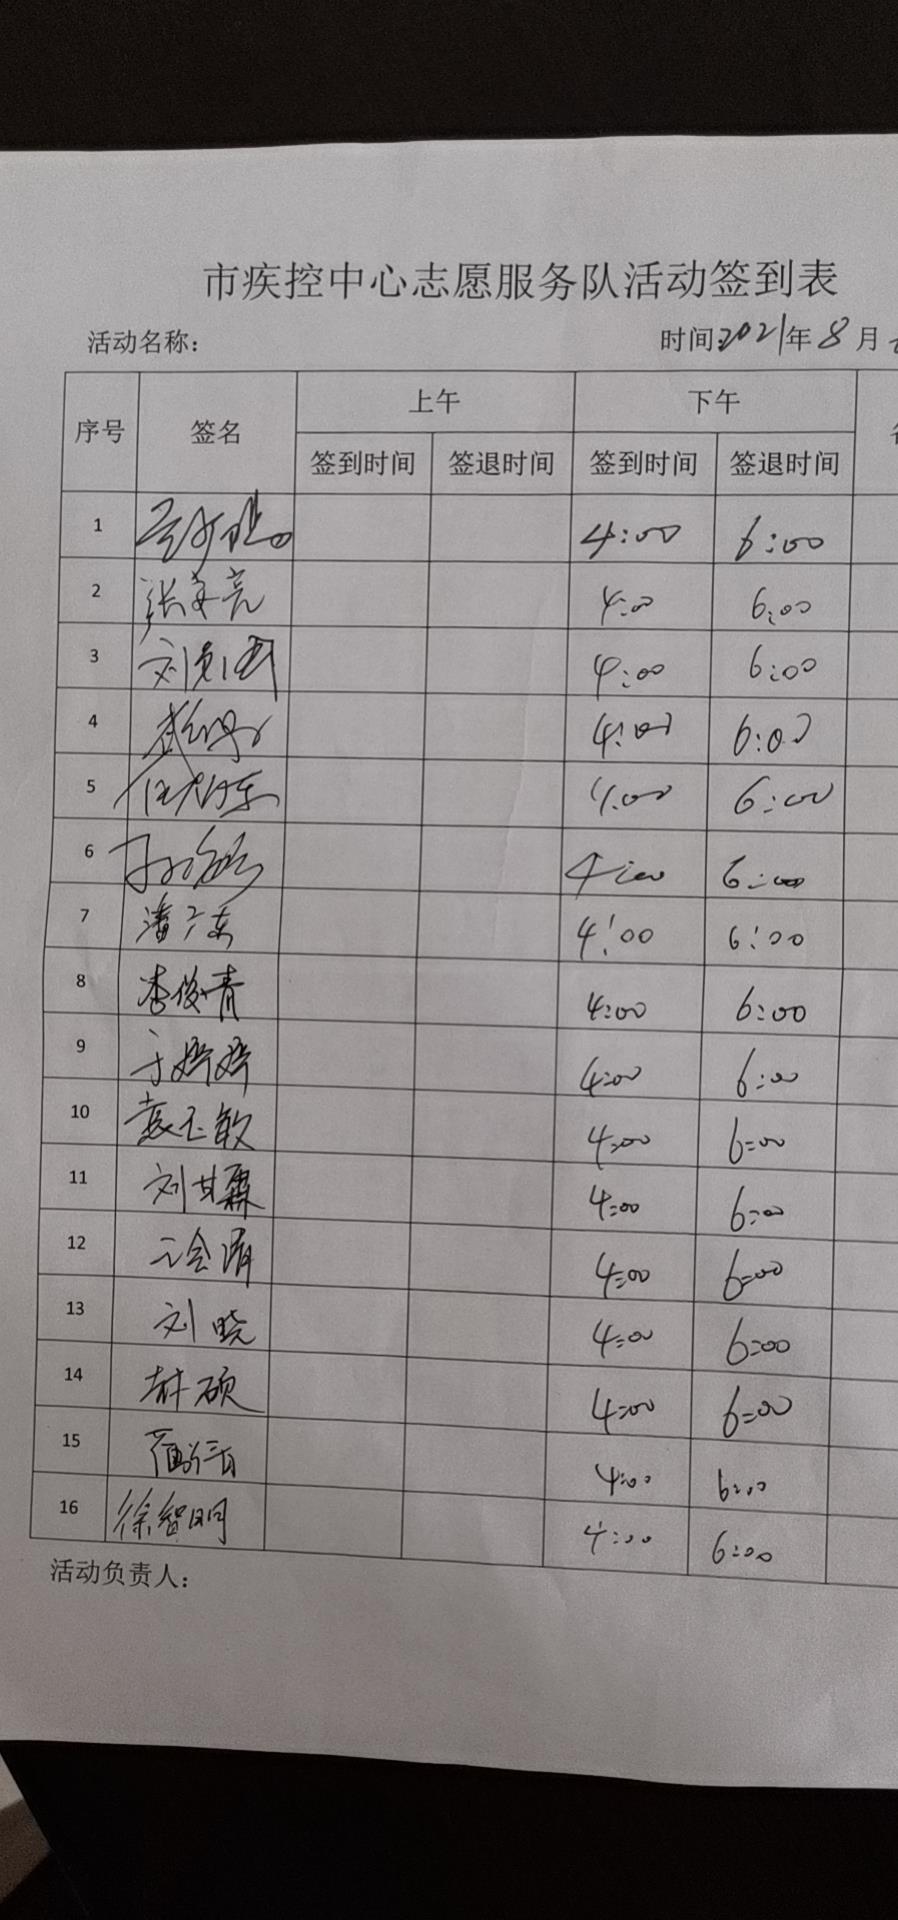 市疾控中心志愿服务队活动签到表
活动名称： 时间：2021年8月
序号 签名 上午 下午
签到时间 签退时间 签到时间 签退时间
1 4:00 6:00
2 张 亮 4:00 6:00
3 刘 4:00 6:00
4 4:00 6:00
5 4:00 6:00
6 4:00 6:00
7 潘广东 4:00 6:00
8 李俊青 4:00 6:00
9 于婷婷 4:00 6:00
10 袁玉敏 4:00 6:00
11 刘甘霖 4:00 6:00
12 4:00 6:00
13 刘晓 4:00 6:00
14 硕 4:00 6:00
15 4:00 6:00
16 徐智明 4:00 6:00
活动负责人：